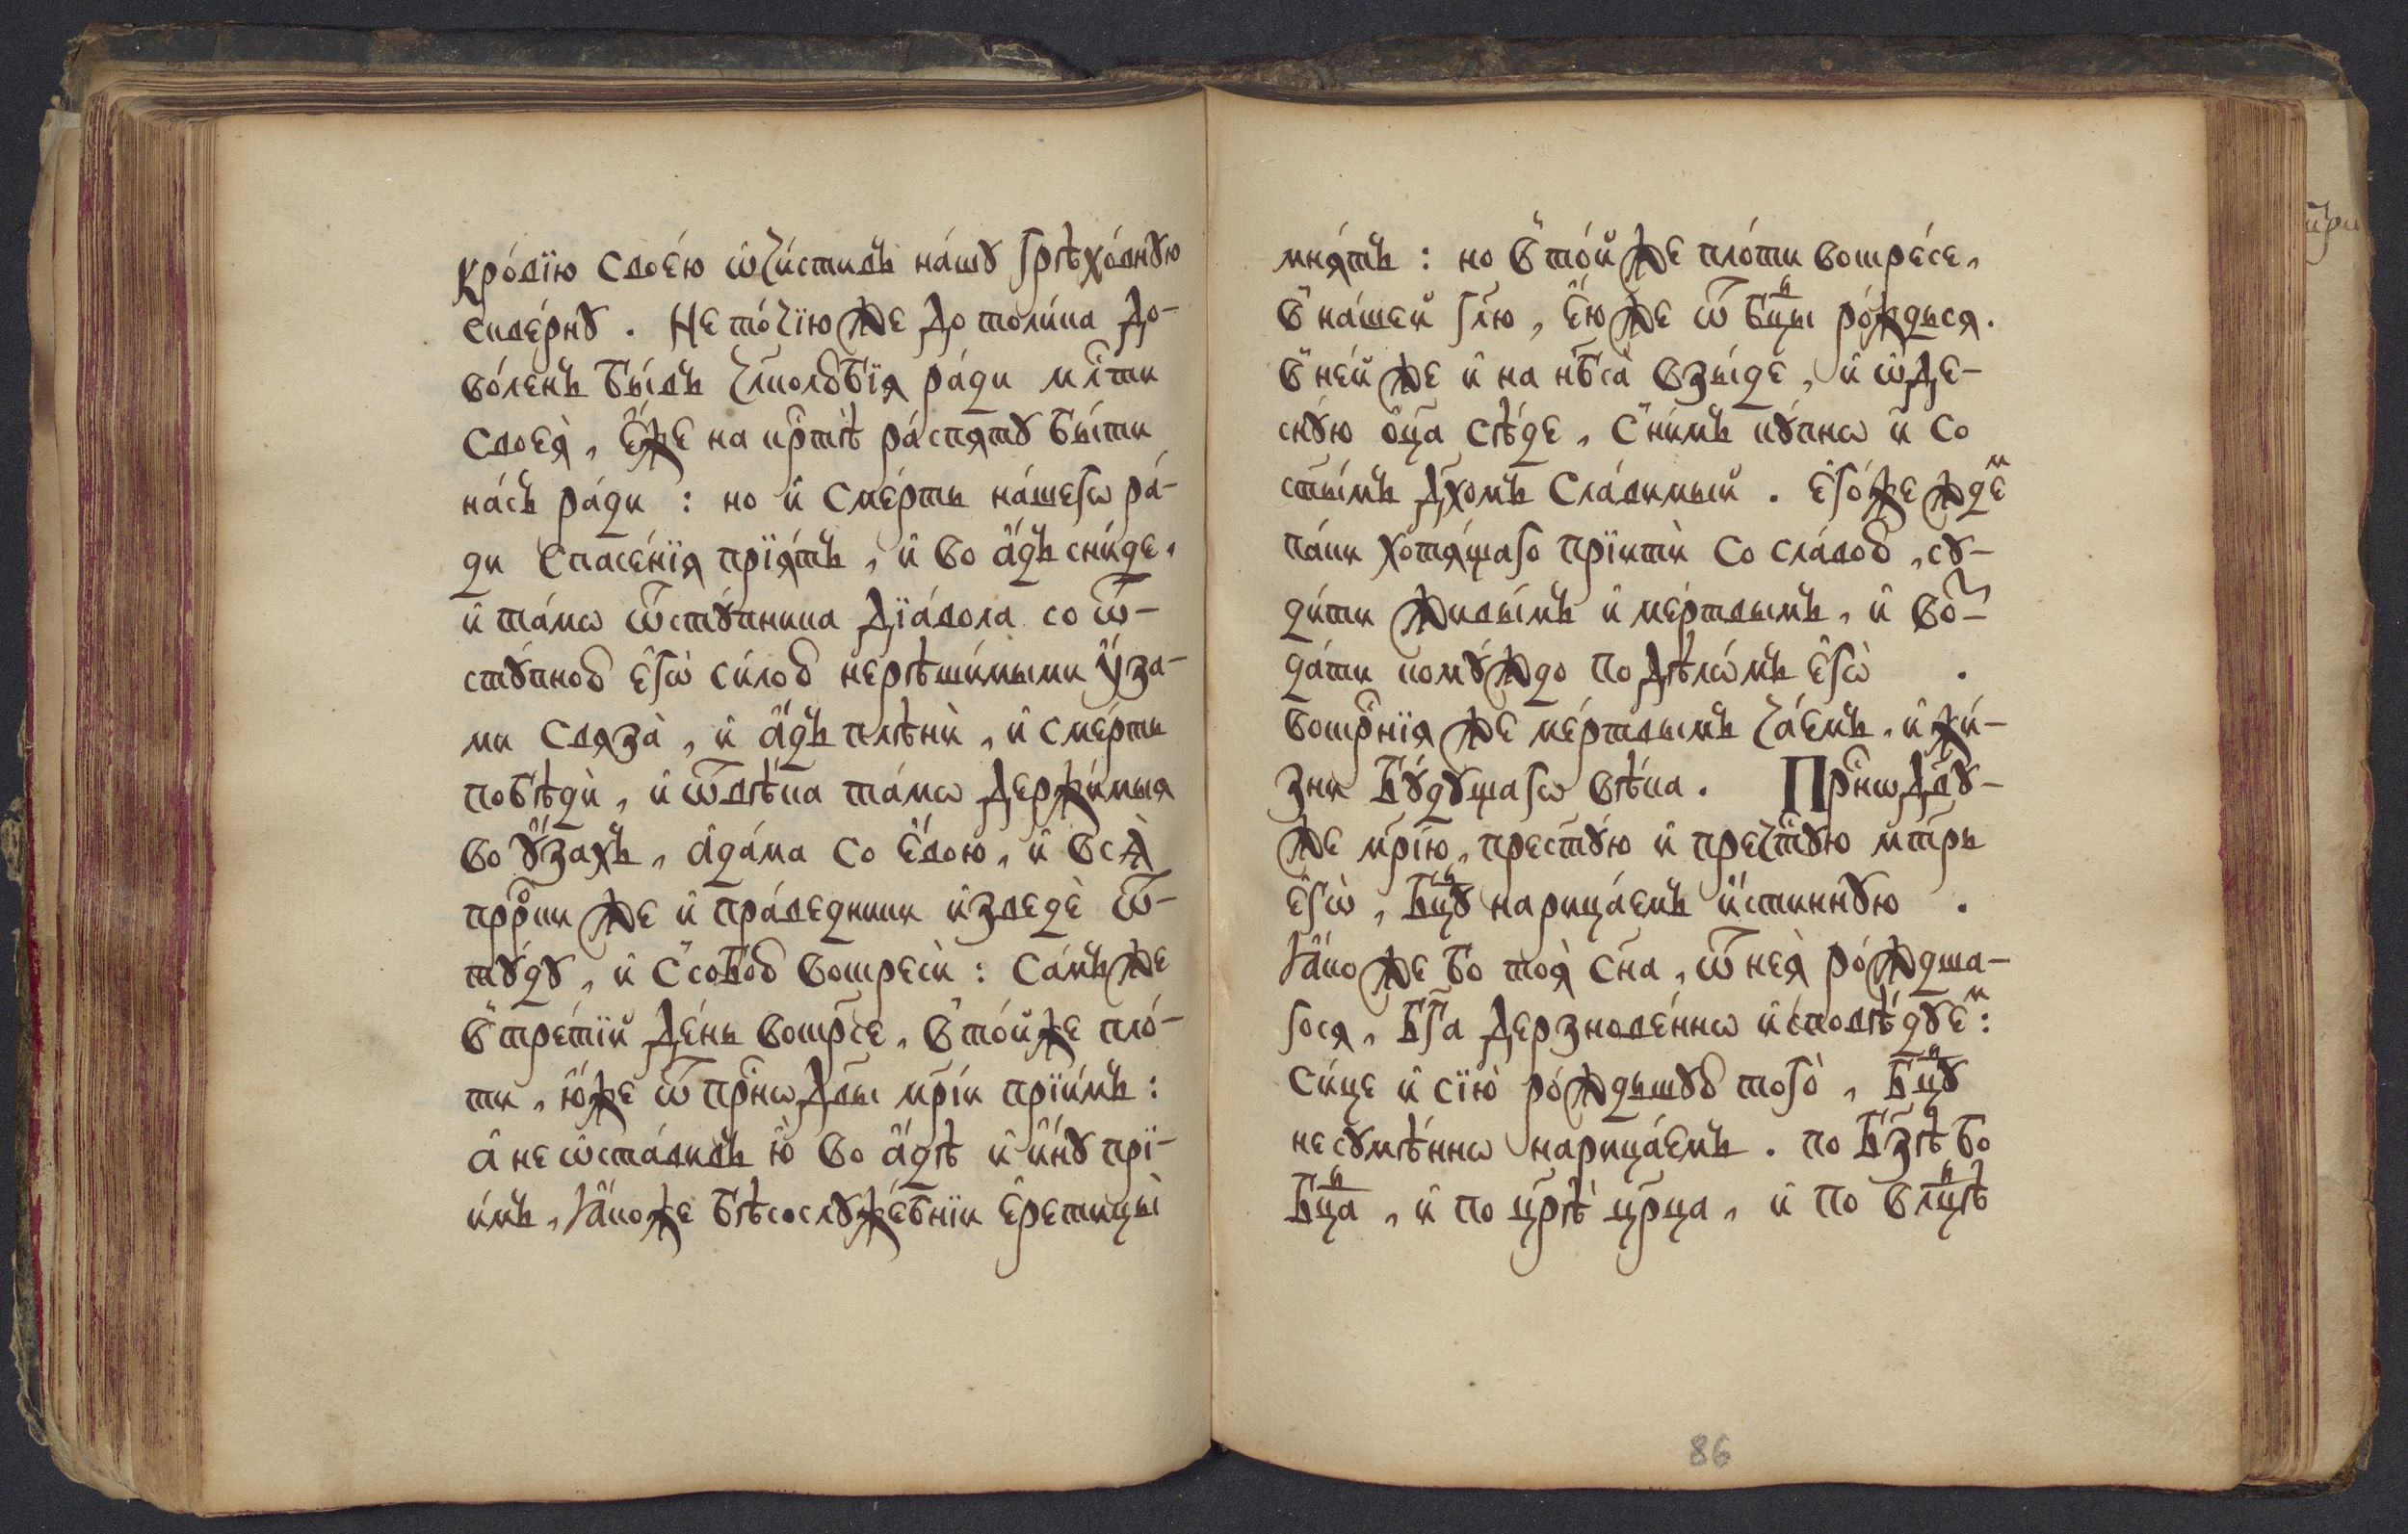 Кро́вїю свое́ю ѡ҆чи́стивъ на́шꙋ грѣхо́внꙋю
скве́рнꙋ . Не то́чїю же до толи́ка до-
во́ленъ бы́въ чл҃колюбїѧ ра́ди мл҃ти
своеѧ̀ , є҆́же на крⷭ҇тѣ ра́спѧтꙋ бы́ти
на́съ ра́ди : но и҆ сме́рть на́шегѡ ра́-
ди спасе́нїѧ прїѧ́тъ , и҆ во а҆́дъ сни́де .
и҆ та́мѡ ѿстꙋ́пника дїа́вола со ѿ-
стꙋ́пною є҆гѡ̀ си́лою нерѣши́мыми ᲂу҆́за-
ми свѧза̀ , и҆ а҆́дъ плѣнѝ , и҆ сме́рть
побѣдѝ , и҆ ѿвѣ́ка та́мѡ держи́мыѧ
во ꙋ҆́захъ , а҆да́ма со є҆́вою , и҆ всѧ̀
прⷪ҇ркѝ же и҆ пра́ведники и҆зведѐ ѿ-
тꙋ́дꙋ , и҆ с̾собою воскресѝ : са́мъ же
в̾тре́тїй де́нь воскр҃се , в̾то́йже пло́-
ти , ю҆́же ѿ прⷭ҇нѡ дв҃ы мр҃і́и прїи́мъ :
а҆ не ѡ҆ста́вивъ ю҆̀ во а҆́дѣ и҆ и҆́нꙋ прї-
и́мъ , ꙗ҆́коже бѣсослꙋже́бнїи є҆ретицы̀
мнѧ́тъ : но в̾то́йже пло́ти воскре́се ,
в̾на́шей гл҃ю , є҆́юже ѿ Бцⷣы ро́ждьсѧ .
в̾не́йже и҆ на нб҃са̀ взы́де , и҆ ѡ҆де-
снꙋ́ю ѻ҆ц҃а сѣ́де , с̾ни́мъ кꙋ́пнѡ и҆ со
ст҃ы́мъ дх҃омъ сла́вимый . є҆го́же ждеⷨ
па́ки хотѧ́щаго прїитѝ со сла́вою , сꙋ-
ди́ти живы́мъ и҆ ме́ртвымъ , и҆ воⷥ-
да́ти комꙋ́ждо по дѣлѡ́мъ є҆гѡ̀ .
воскрⷭ҇нїѧ же ме́ртвымъ ча́емъ , и҆ жи́-
зни бꙋ́дꙋщагѡ вѣ́ка . Прⷭ҇нѡ дв҃ꙋ-
же мр҃і́ю , прест҃ꙋ́ю и҆ пречⷭ҇тꙋю мт҃рь
є҆гѡ̀ , Бцⷣꙋ нарица́емъ и҆́стиннꙋю .
ꙗ҆́коже бо тоѧ̀ сн҃а , ѿ неѧ̀ ро́ждша-
госѧ , бг҃а дерзнове́ннѡ и҆сповѣ́дꙋеⷨ :
си́це и҆ сїю̀ ро́ждьшꙋю того̀ , Бцⷣꙋ
несꙋмѣ́ннѡ нарица́емъ . по бз҃ѣ бо
Бцⷣа , и҆ по цр҃ѣ цр҃ца , и҆ по влⷣцѣ
86